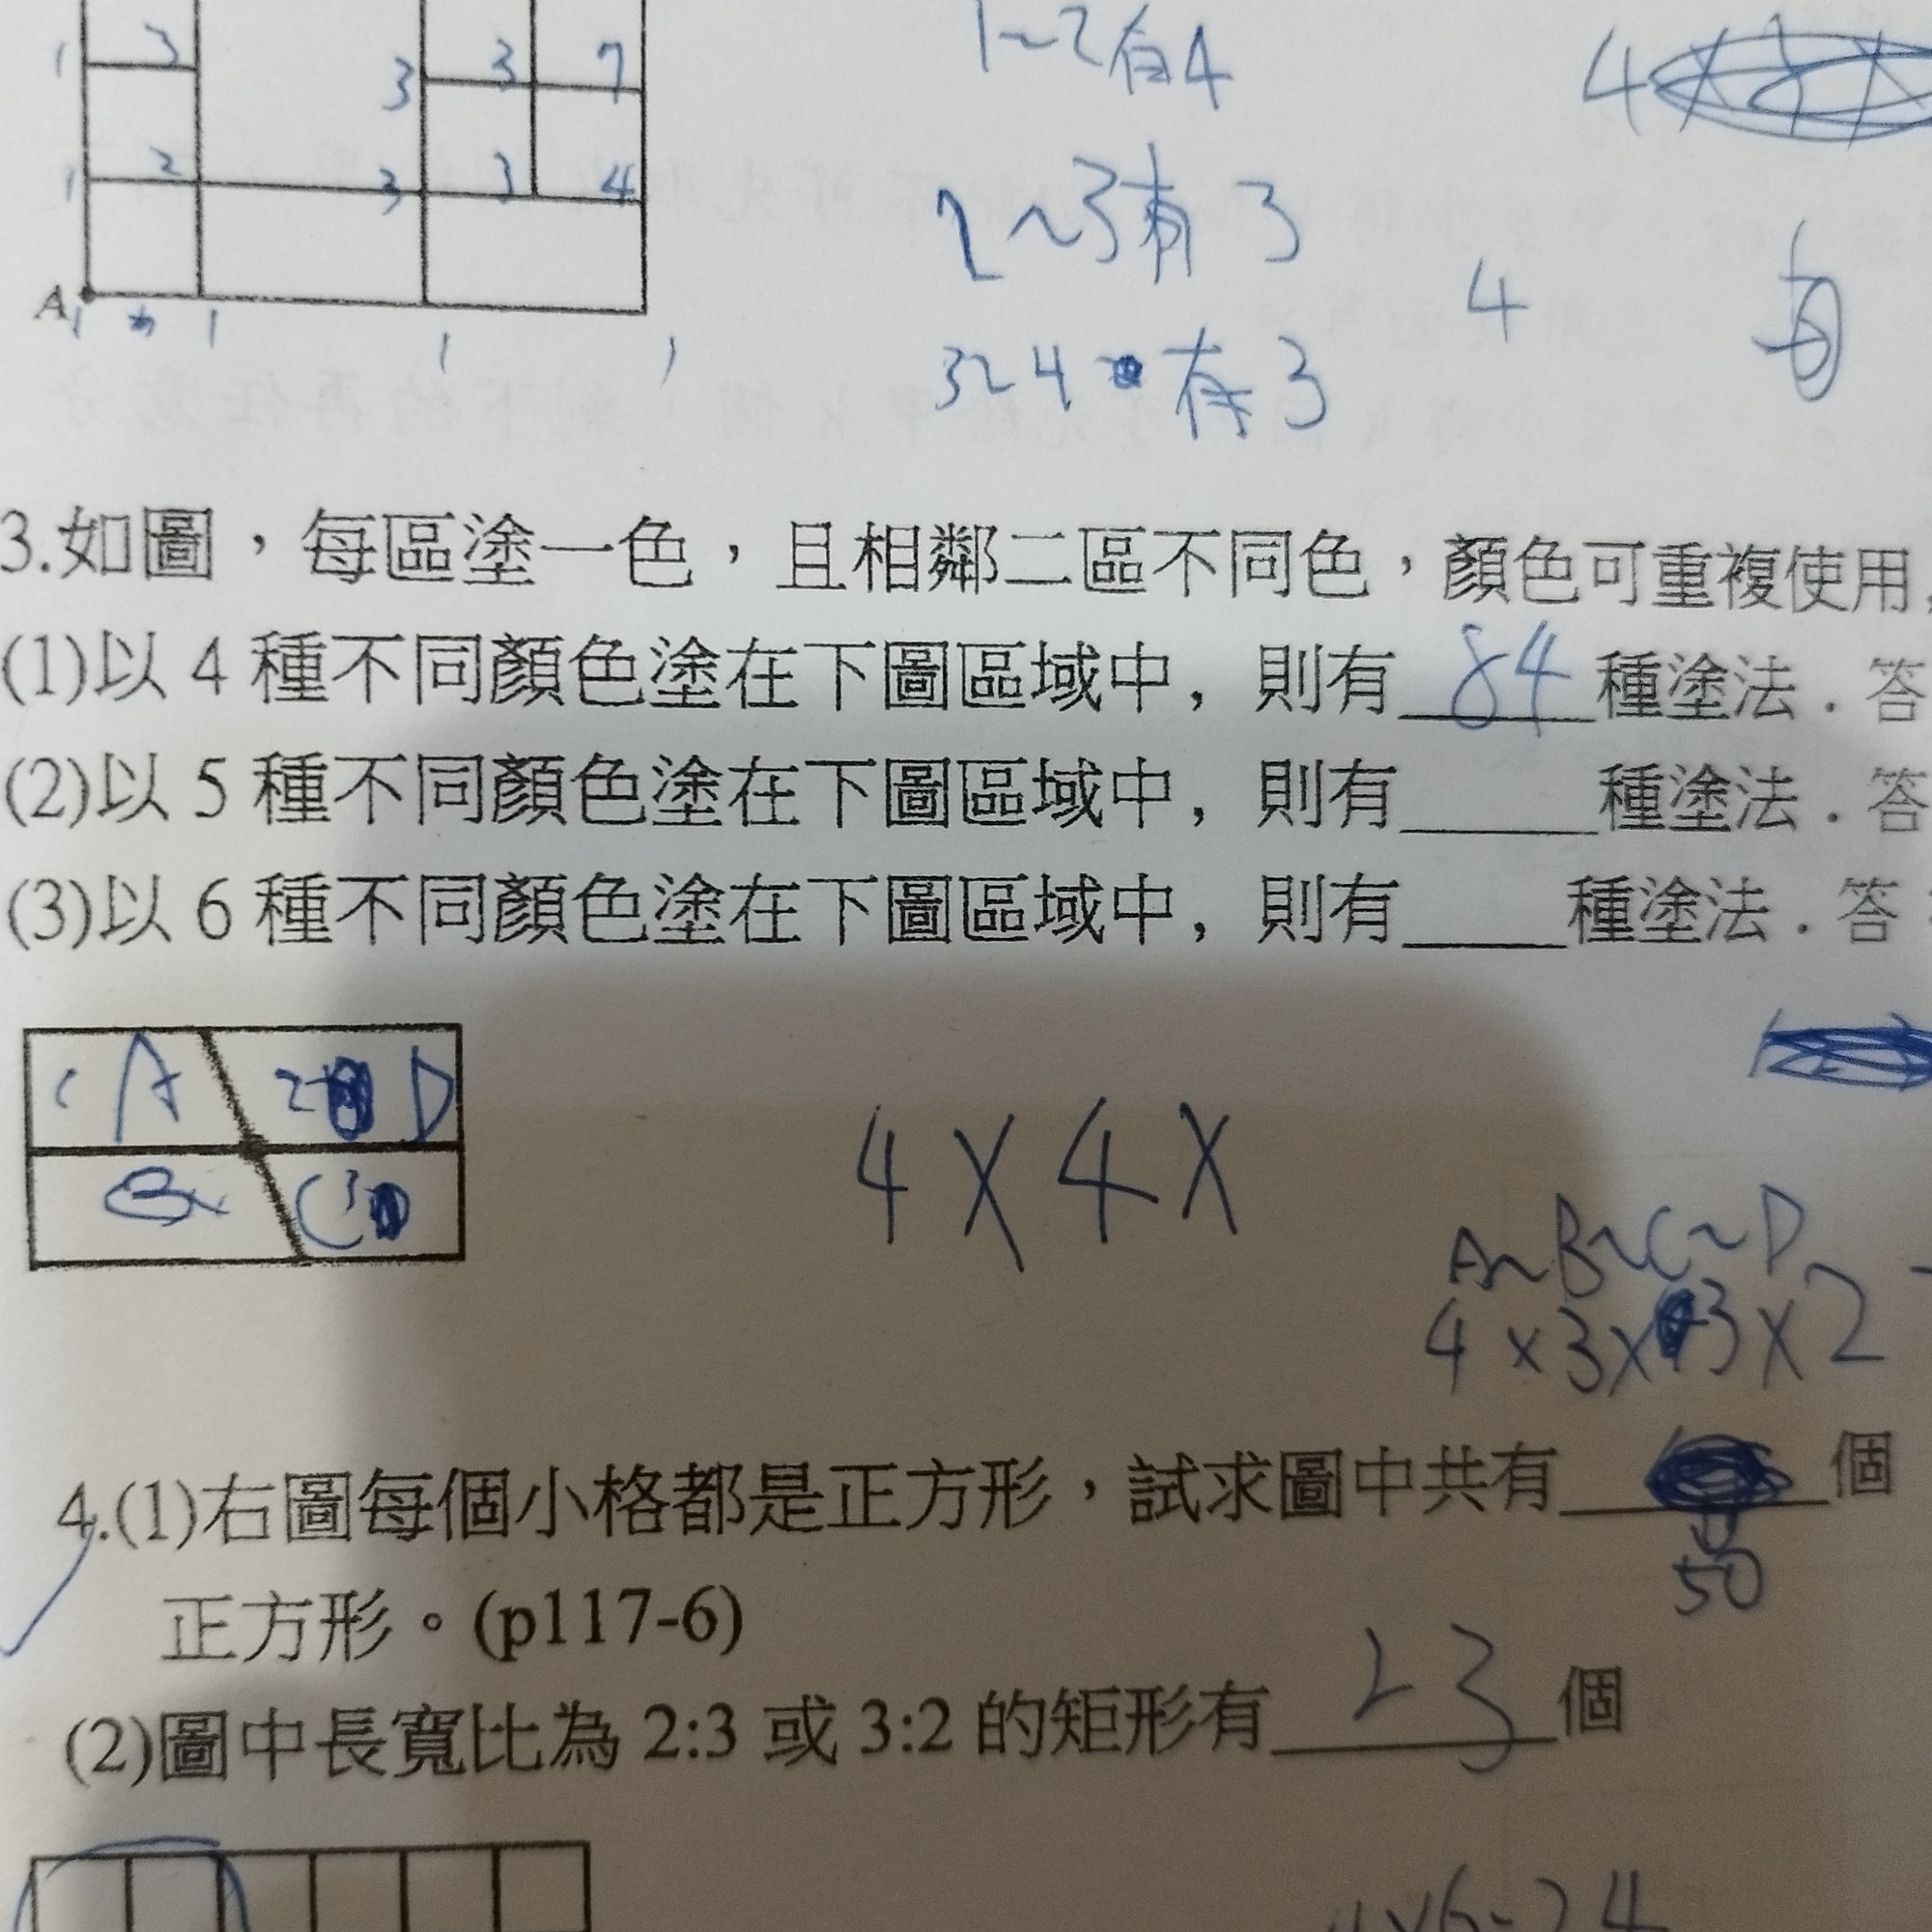 1 3 3 3 7
1 2 3 3 4
A 1 1 1 1
1~2有4
2~3有3
3~4有3
4
3.如圖，每區塗一色，且相鄰二區不同色，顏色可重複使用,
(1)以 4 種不同顏色塗在下圖區域中, 則有 84 種塗法. 答
(2)以 5 種不同顏色塗在下圖區域中, 則有_____種塗法. 答
(3)以 6 種不同顏色塗在下圖區域中, 則有____種塗法. 答
A 2 D
B C 3
4×4×
A~B~C~D
4×3×3×2
4.(1)右圖每個小格都是正方形，試求圖中共有 50 個
正方形。(p117-6)
(2)圖中長寬比為 2:3 或 3:2 的矩形有 23 個